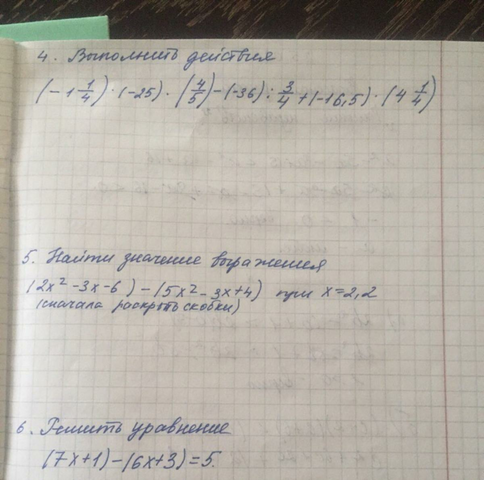 4. Выполнить действия
(-1 1/4) · (-25) · (4/5) - (-36) : 3/4 + (-16,5) · (4 1/4)
5. Найти значение выражения
(2x² - 3x - 6) - (5x² - 3x + 4) при x = 2,2
(сначала раскрыть скобки)
6. Решить уравнение
(7x + 1) - (6x + 3) = 5.